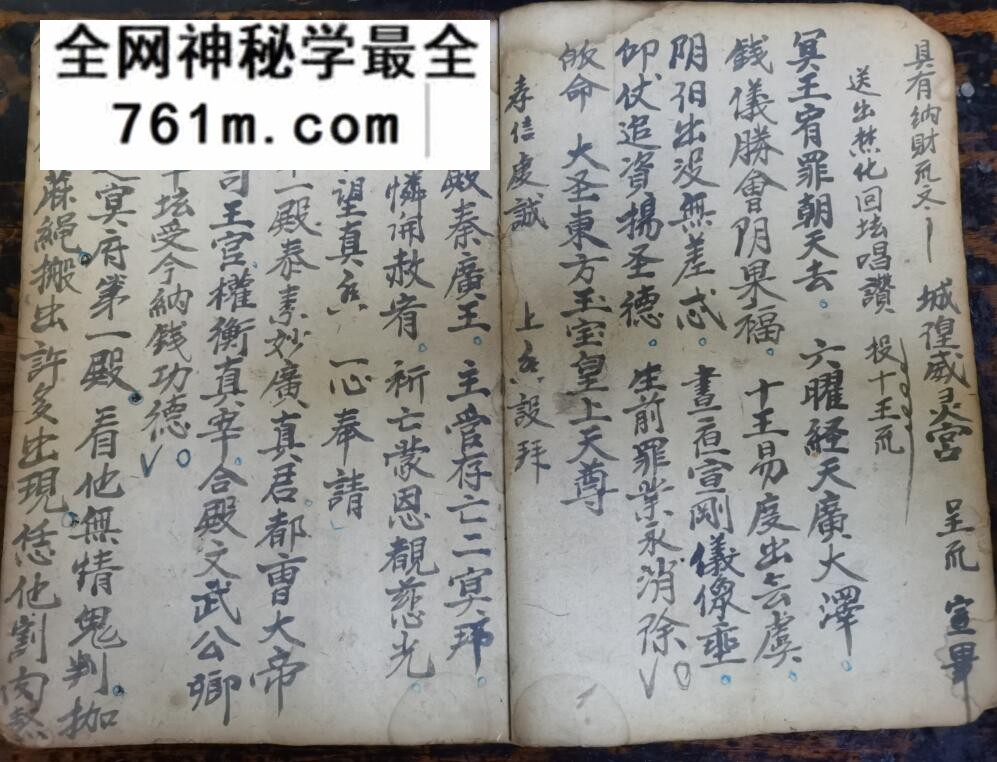 全网神秘学最全
761m.com
具有纳財疏文 城隍威灵宮 呈疏 宣畢
送出焚化回坛唱讚 投十王疏
冥王宥罪朝天去 六曜経天廣大澤
錢儀勝會阴果福 十王易度出会虞
阴阳出没無差忒 晝夜宣剛儀像垂
仰仗追資揚圣德 生前罪業永消除
皈命 大圣東方玉宝皇上天尊
孝信虔誠 上香設拜
殿秦廣王 主管存亡二冥邦
憐開赦宥 祈亡蒙恩覩慈光
望真香 一心奉請
一殿泰素妙廣真君 都曹大帝
司王官權衡真宰合殿文武公卿
坛受今納錢功德
冥府第一殿 看他無情鬼判 枷
麻繩搬出許多出現 恁他割肉熬